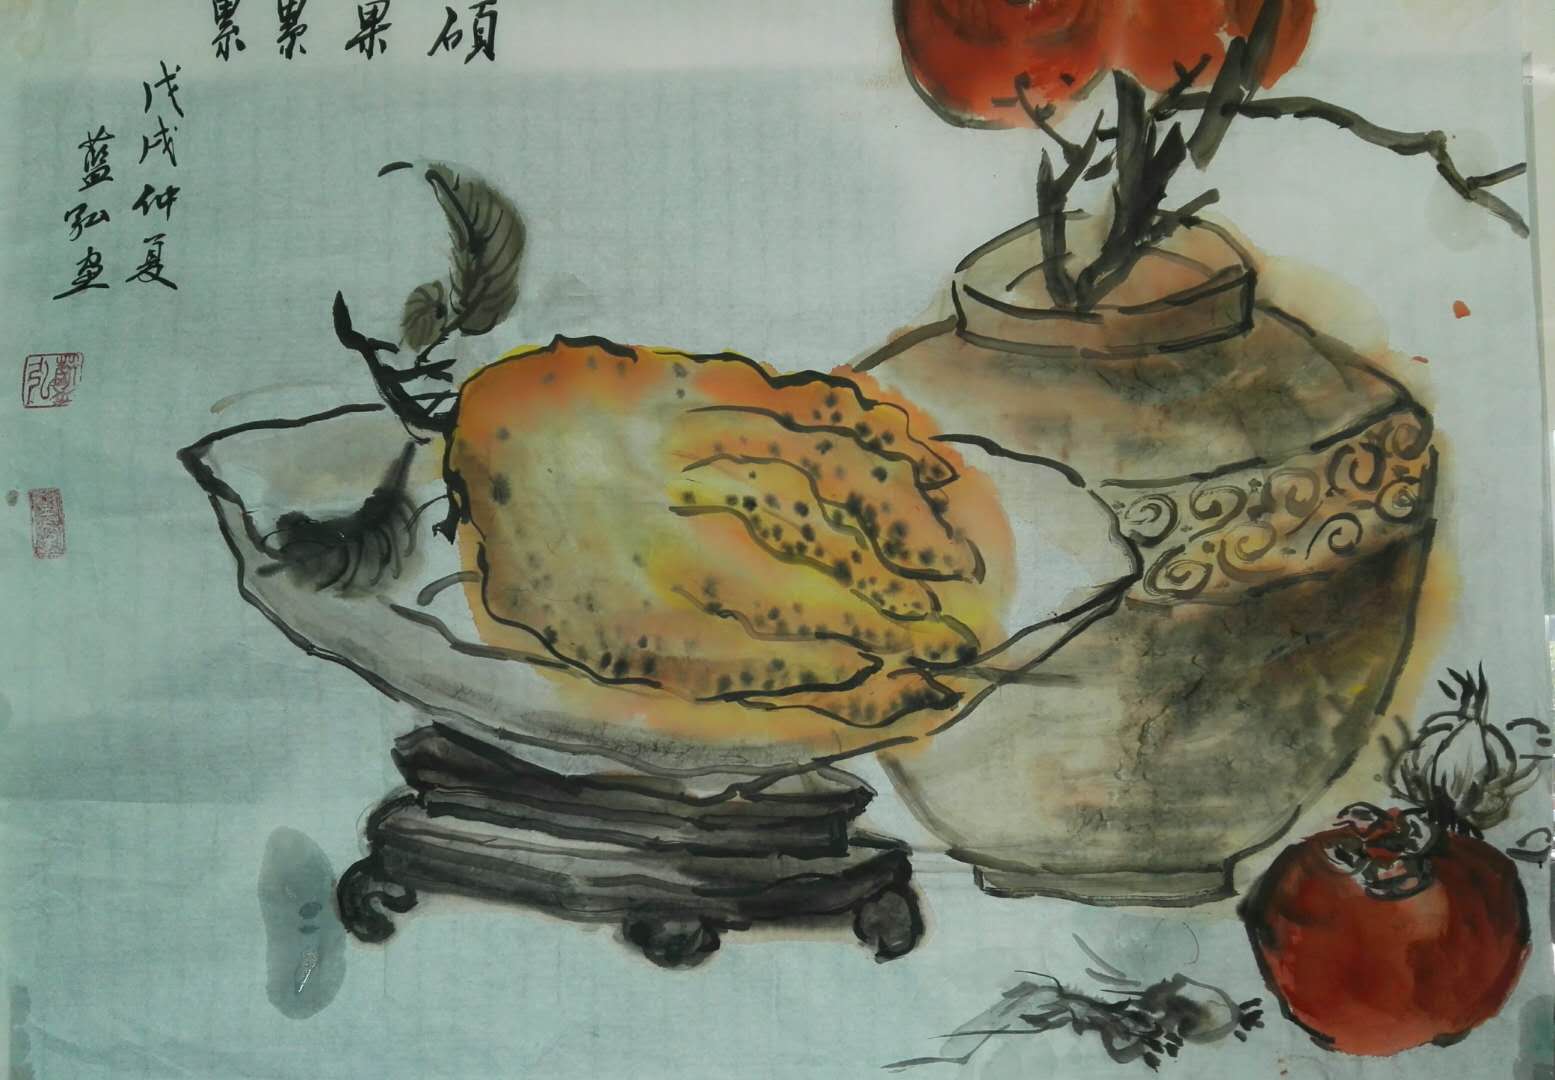 硕果累累
戊戌仲夏
蓝弘画